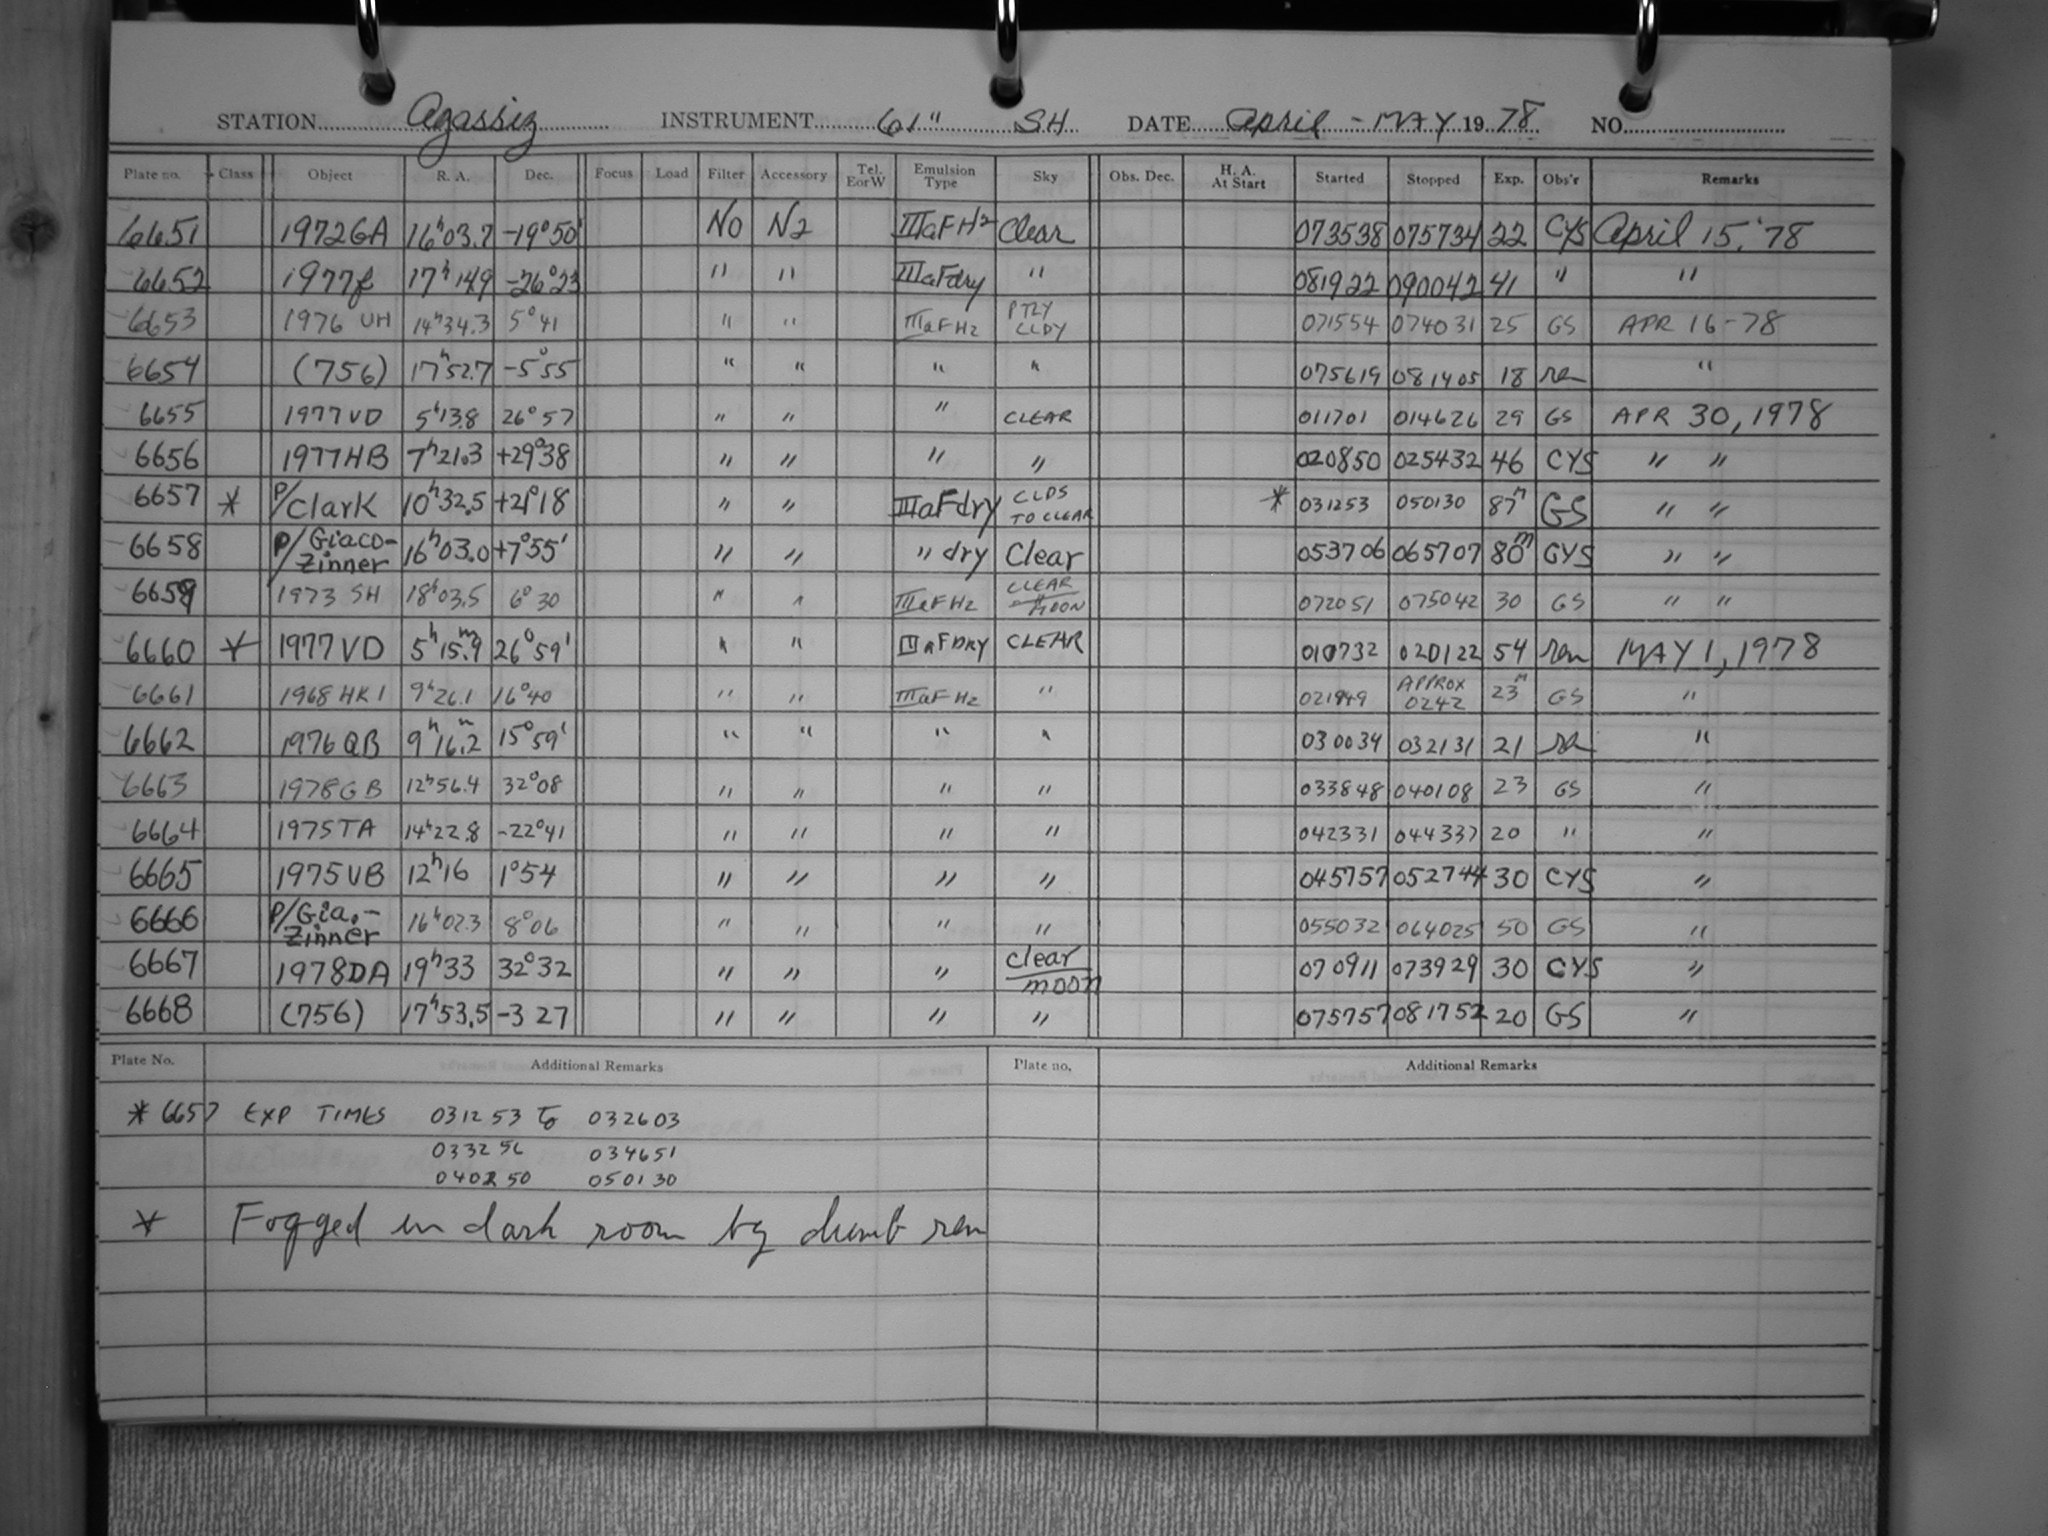 STATION Agassiz INSTRUMENT 61" SH DATE April - MAY 1978 NO.
Plate no. Class Object R. A. Dec. Focus Load Filter Accessory Tel. EorW Emulsion Type Sky Obs. Dec. H. A. At Start Started Stopped Exp. Obs'r Remarks
6651 1972GA 16h03.7 -19°50' No N2 IIIaFH2 Clear 073538 075734 22 CYS April 15, '78
6652 1977f 17h14.9 -26°23 " " IIIaFdry " 081922 090042 41 " "
6653 1976 UH 14h34.3 5°41 " " IIIaFH2 PTLY CLDY 071554 074031 25 GS APR 16-78
6654 (756) 17h52.7 -5°55 " " " " 075619 081405 18 rem "
6655 1977VD 5h13.8 26°57 " " " CLEAR 011701 014626 29 GS APR 30, 1978
6656 1977HB 7h21.3 +29°38 " " " " 020850 025432 46 CYS " "
6657 * P/Clark 10h32.5 +21°18 " " IIIaFdry CLDS TO CLEAR * 031253 050130 87m GS " "
6658 P/Giaco-Zinner 16h03.0 +7°55' " " " dry Clear 053706 065707 80m CYS " "
6659 1973 SH 18h03.5 6°30 " " IIIaFH2 CLEAR MOON 072051 075042 30 GS " "
6660 * 1977VD 5h15.m9 26°59' " " IIIaFDRY CLEAR 010732 020122 54 rem MAY 1, 1978
6661 1968 HK1 9h26.1 16°40 " " IIIaFH2 " 021949 APPROX 0242 23m GS "
6662 1976QB 9h16.m2 15°59' " " " " 030034 032131 21 rem "
6663 1978GB 12h56.4 32°08 " " " " 033848 040108 23 GS "
6664 1975TA 14h22.8 -22°41 " " " " 042331 044337 20 " "
6665 1975VB 12h16 1°54 " " " " 045757 052744 30 CYS "
6666 P/Gia.-Zinner 16h02.3 8°06 " " " " 055032 064025 50 GS "
6667 1978DA 19h33 32°32 " " " clear moon 070911 073929 30 CYS "
6668 (756) 17h53.5 -3 27 " " " " 075757 081752 20 GS "
Plate No. Additional Remarks Plate no. Additional Remarks
* 6657 EXP TIMES 031253 To 032603
033256 034651
040250 050130
* Fogged in dark room by dumb rem